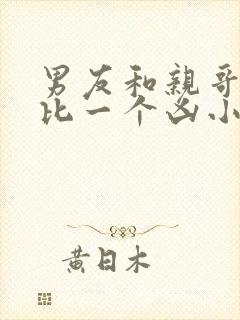 男友和亲哥
比一个凶小
黄日木